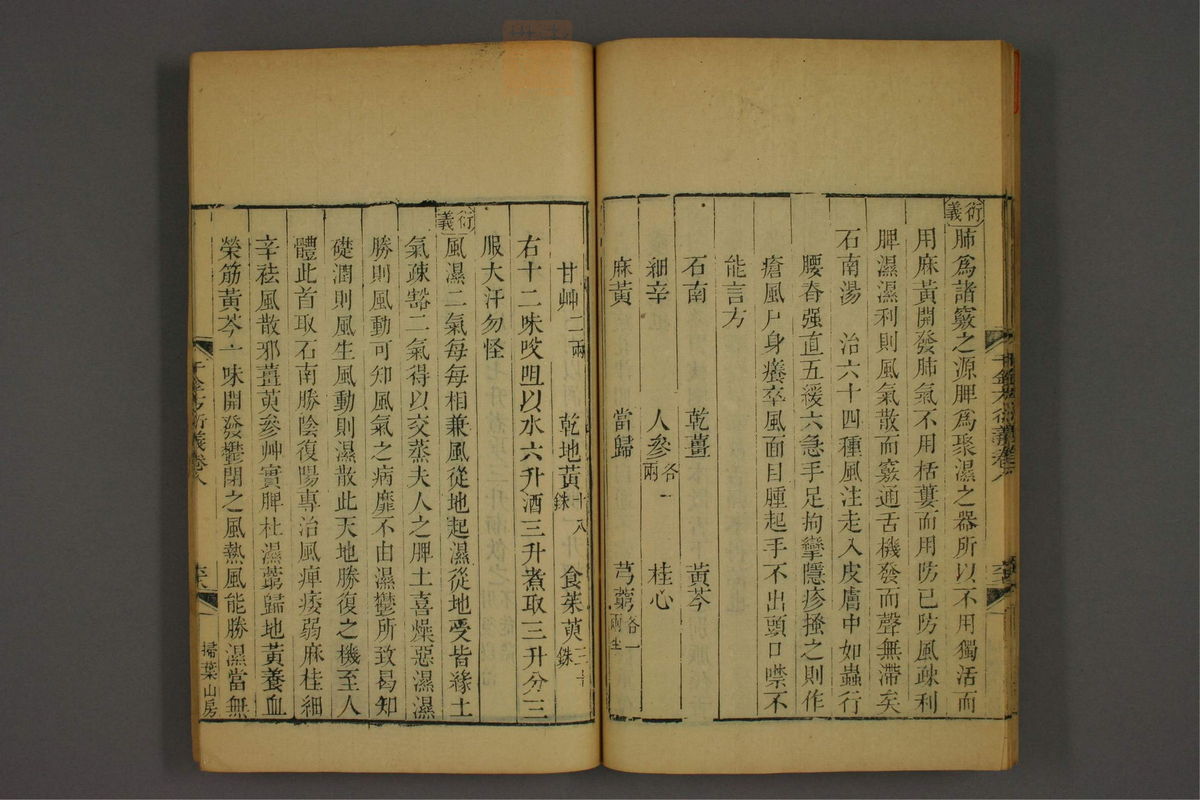 衍義
肺爲諸竅之源脾爲聚濕之器所以不用獨活而
用麻黃開發肺氣不用栝蔞而用防己防風疎利
脾濕濕利則風氣散而竅通舌機發而聲無滯矣
石南湯 治六十四種風注走入皮膚中如蟲行
腰脊强直五緩六急手足拘攣隱疹搔之則作
瘡風尸身癢卒風面目腫起手不出頭口噤不
能言方
石南 乾薑 黃芩
細辛 人參各一兩 桂心
麻黃 當歸 芎藭各一兩半
甘艸二兩 乾地黃十八銖 食茱萸三十銖
右十二味㕮咀以水六升酒三升煮取三升分三
服大汗勿怪
衍義
風濕二氣每每相兼風從地起濕從地受皆緣土
氣疎豁二氣得以交蒸夫人之脾土喜燥惡濕濕
勝則風動可知風氣之病靡不由濕鬱所致曷知
礎潤則風生風動則濕散此天地勝復之機至人
體此首取石南勝陰復陽專治風痺痿弱麻桂細
辛祛風散邪薑萸參艸實脾杜濕藭歸地黃養血
榮筋黃芩一味開發鬱閉之風熱風能勝濕當無
千金方衍義卷八
掃葉山房